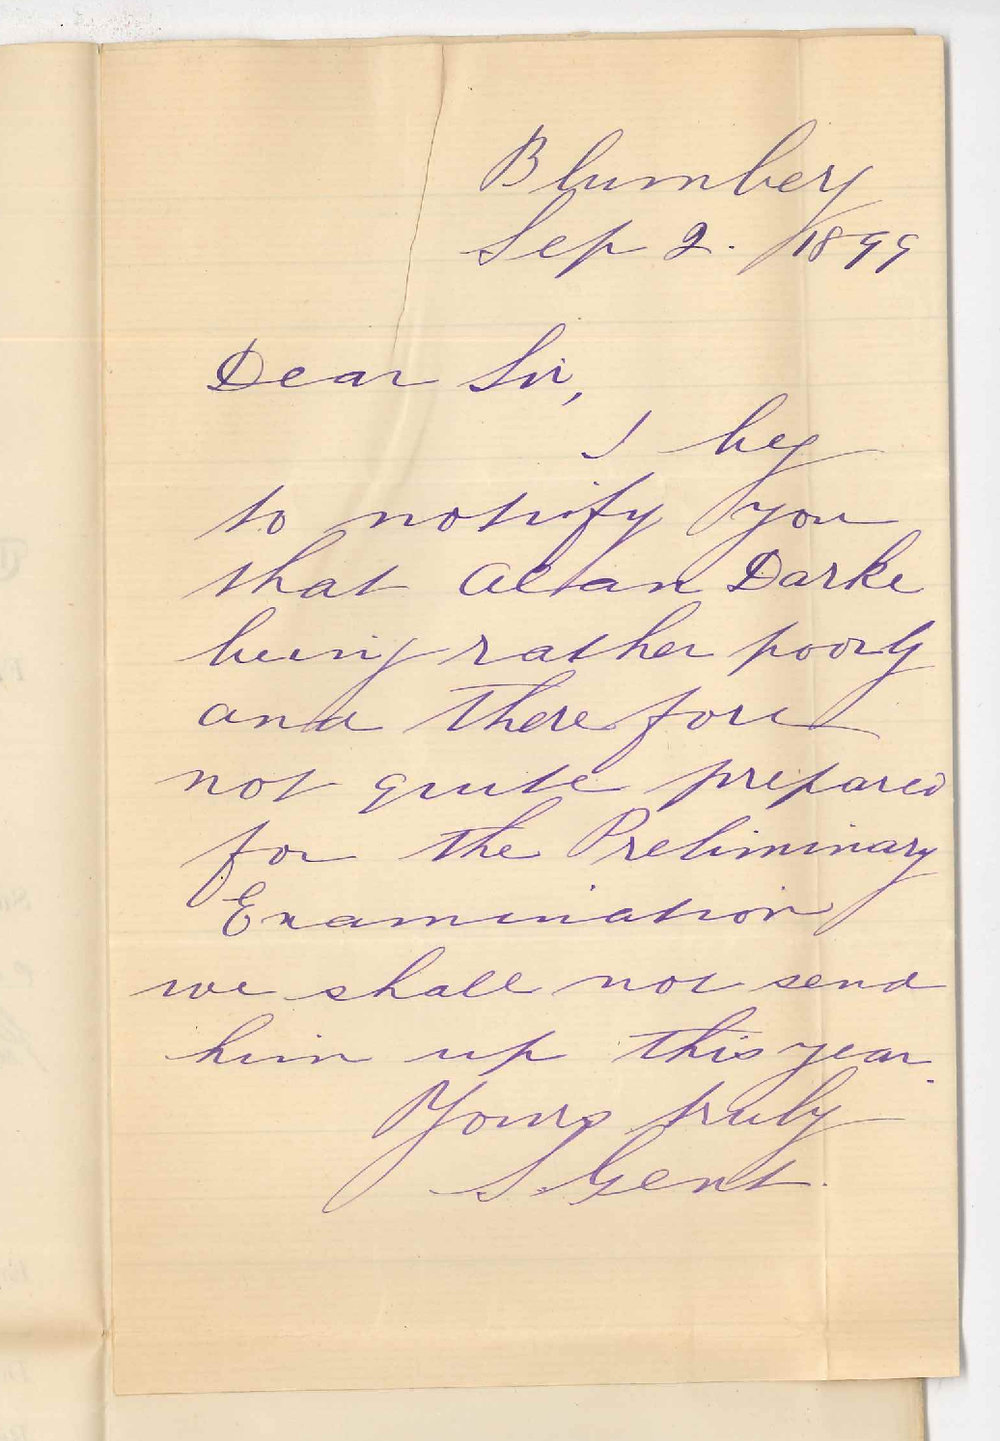 Blumberg
Sep 2. 1899
Dear Sir,
I beg
to notify you
that Allan Darke
being rather poorly
and therefore
not quite prepared
for the Preliminary
Examination
we shall not send
him up this year.
Yours truly
S. Gent.